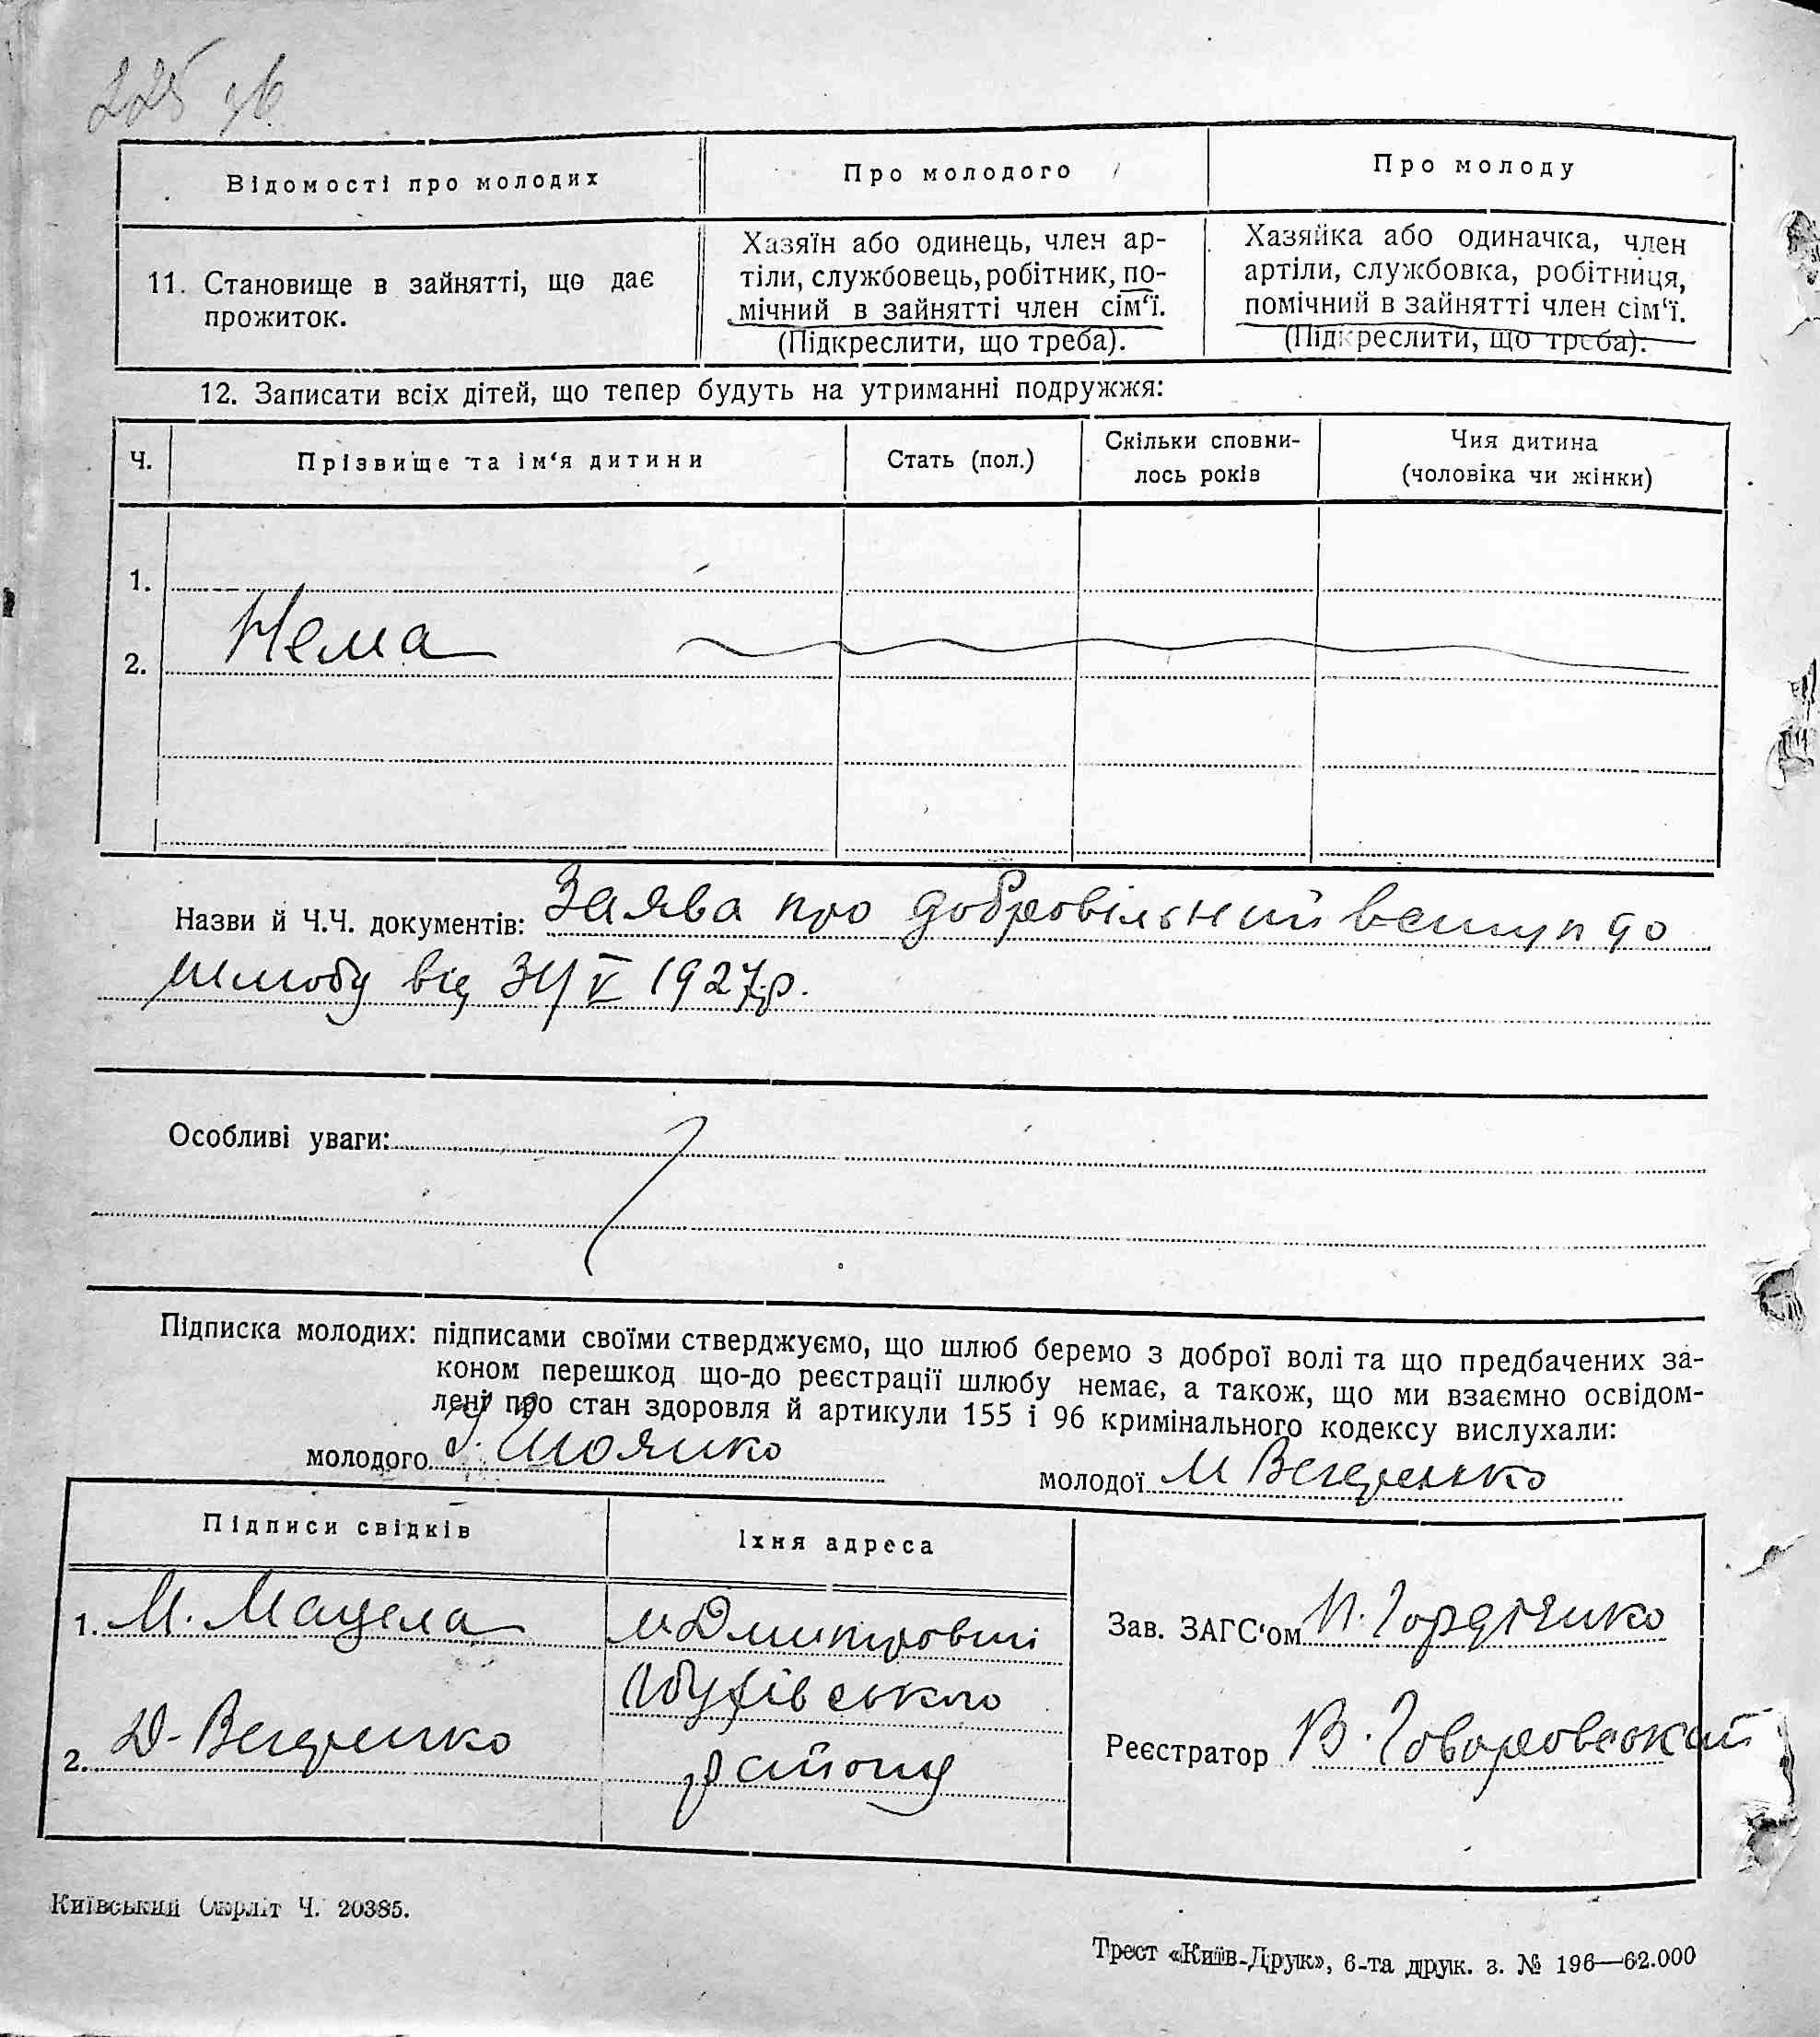 225 зв.
Відомості про молодих
Про молодого
Про молоду
11. Становище в зайнятті, що дає
прожиток.
Хазяїн або одинець, член ар-
тіли, службовець, робітник, по-
мічний в зайнятті член сім‘ї.
(Підкреслити, що треба).
Хазяйка або одиначка, член
артіли, службовка, робітниця,
помічний в зайнятті член сім‘ї.
(Підкреслити, що треба).
12. Записати всіх дітей, що тепер будуть на утриманні подружжя:
Ч.
Прізвище та ім‘я дитини
Стать (пол.)
Скільки сповни-
лось років
Чия дитина
(чоловіка чи жінки)
1.
2. Нема
Назви й Ч.Ч. документів: Заява про добровільний вступ до
шлюбу від 31/V 1927 р.
Особливі уваги:
Підписка молодих: підписами своїми стверджуємо, що шлюб беремо з доброї волі та що предбачених за-
коном перешкод що-до реєстрації шлюбу немає, а також, що ми взаємно освідом-
лені про стан здоровля й артикули 155 і 96 кримінального кодексу вислухали:
молодого
молодої М Венгренко
Підписи свідків
Їхня адреса
1. М. Мацела
м Дмитровці
Обухівського
2. Д. Венгренко
району
Зав. ЗАГС‘ом П. Гордієнко
Реєстратор В. Говоровський
Київський Окрліт Ч. 20385.
Трест «Київ-Друк», 6-та друк. з. № 196—62.000